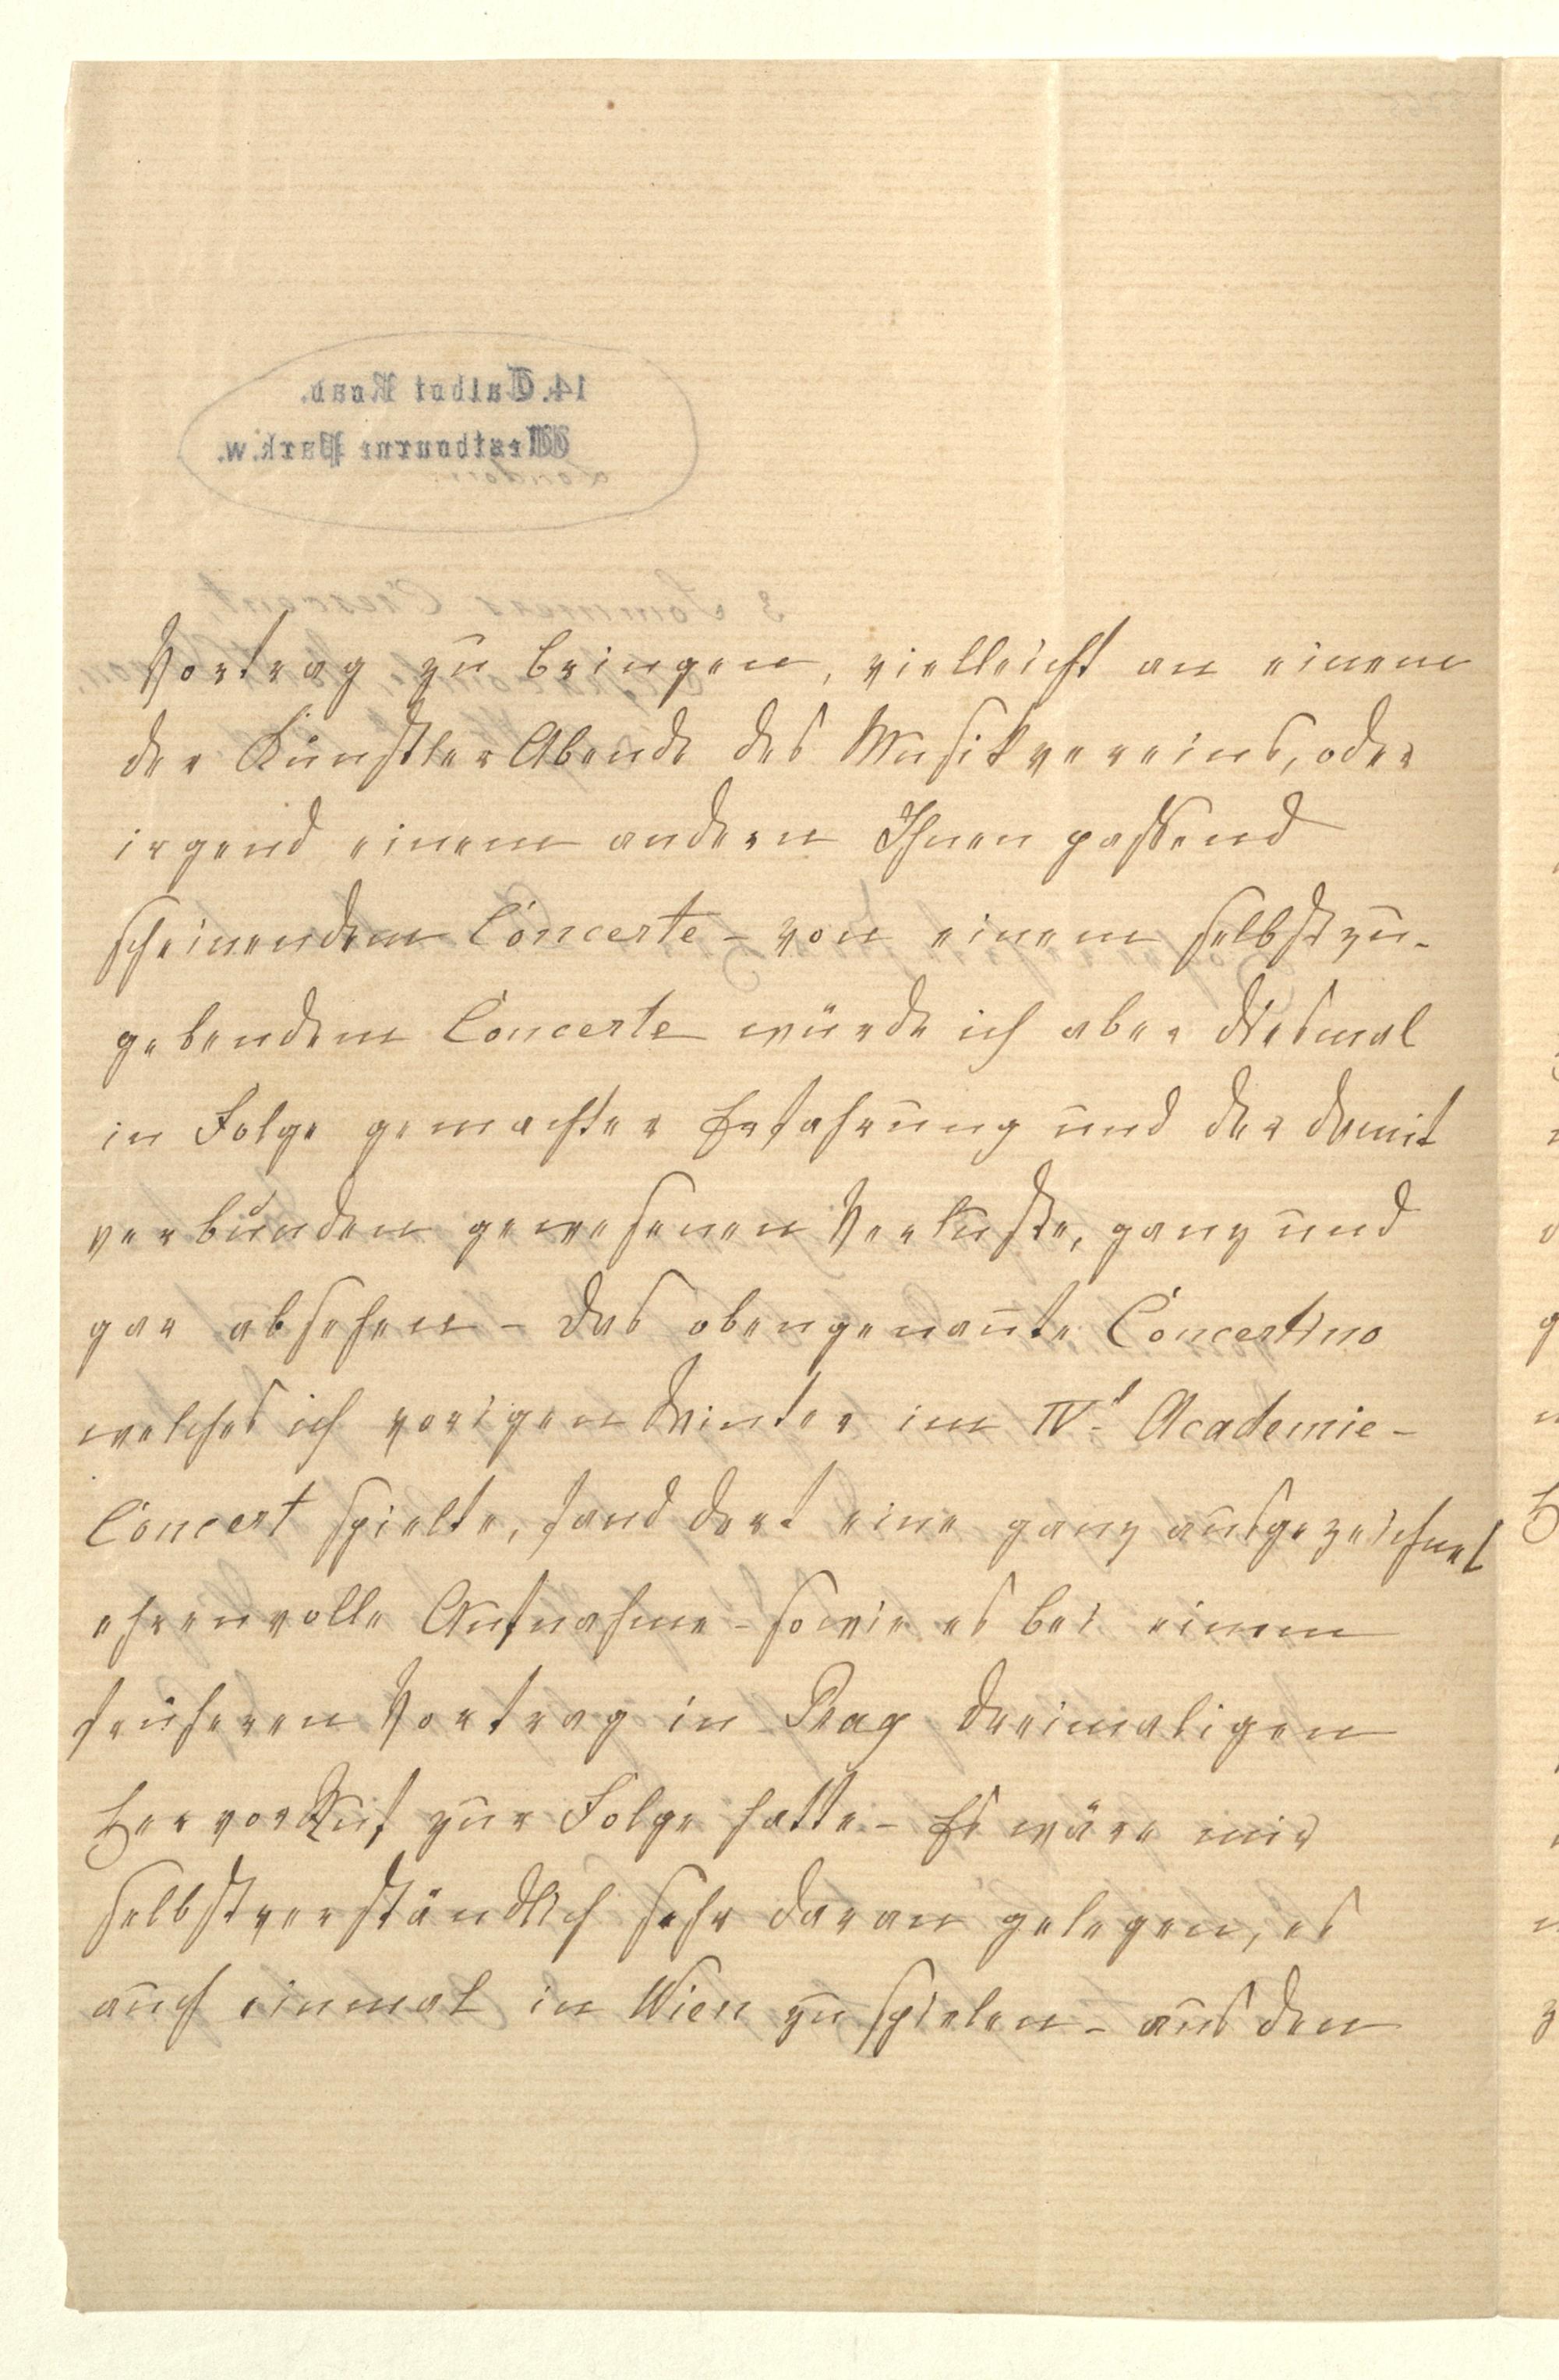 14. Talbot Road.
Westbourne Park. W.
London.
Vortrag zu bringen, vielleicht an einem
der Künstler Abende des Musikvereins, oder
irgend einem andern Ihnen passend
scheinenden Concerte – von einem selbst zu-
gebendem Concerte würde ich aber diesmal
in Folge gemachter Erfahrung und der damit
verbunden gewesenen Verluste, ganz und
gar absehen – das obengenan̄te Concertino
welches ich vorigen Winter im IVt Academie-
Concert spielte, fand dort eine ganz ausgezeichnet
ehrenvolle Aufnahme – sowie es bei einem
früheren Vortrag in Prag dreimaligen
Hervor Ruf zur Folge hatte – Es wäre mir
selbstverständlich sehr daran gelegen, es
auch einmal in Wien zu spielen – aus den